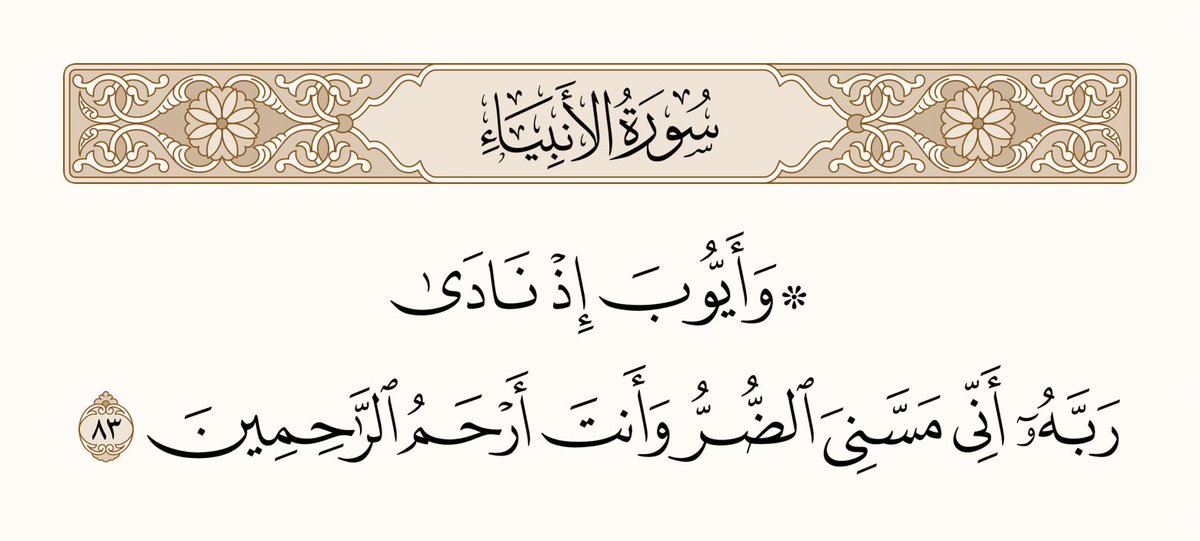 سُورَةُ الأَنبِيَاءِ
۞ وَأَيُّوبَ إِذۡ نَادَىٰ
رَبَّهُۥٓ أَنِّي مَسَّنِيَ ٱلضُّرُّ وَأَنتَ أَرۡحَمُ ٱلرَّٰحِمِينَ ٨٣